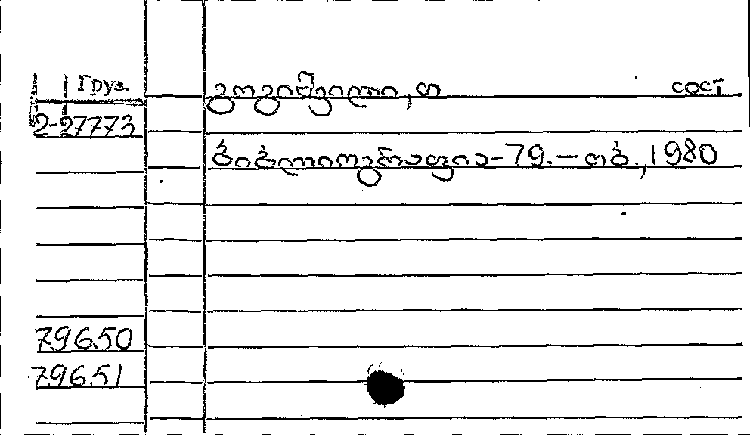 Груз.
გოგიშვილი, თ сост
2-27773
ბიბლიოგრაფია-79. – თბ., 1980
79650
79651